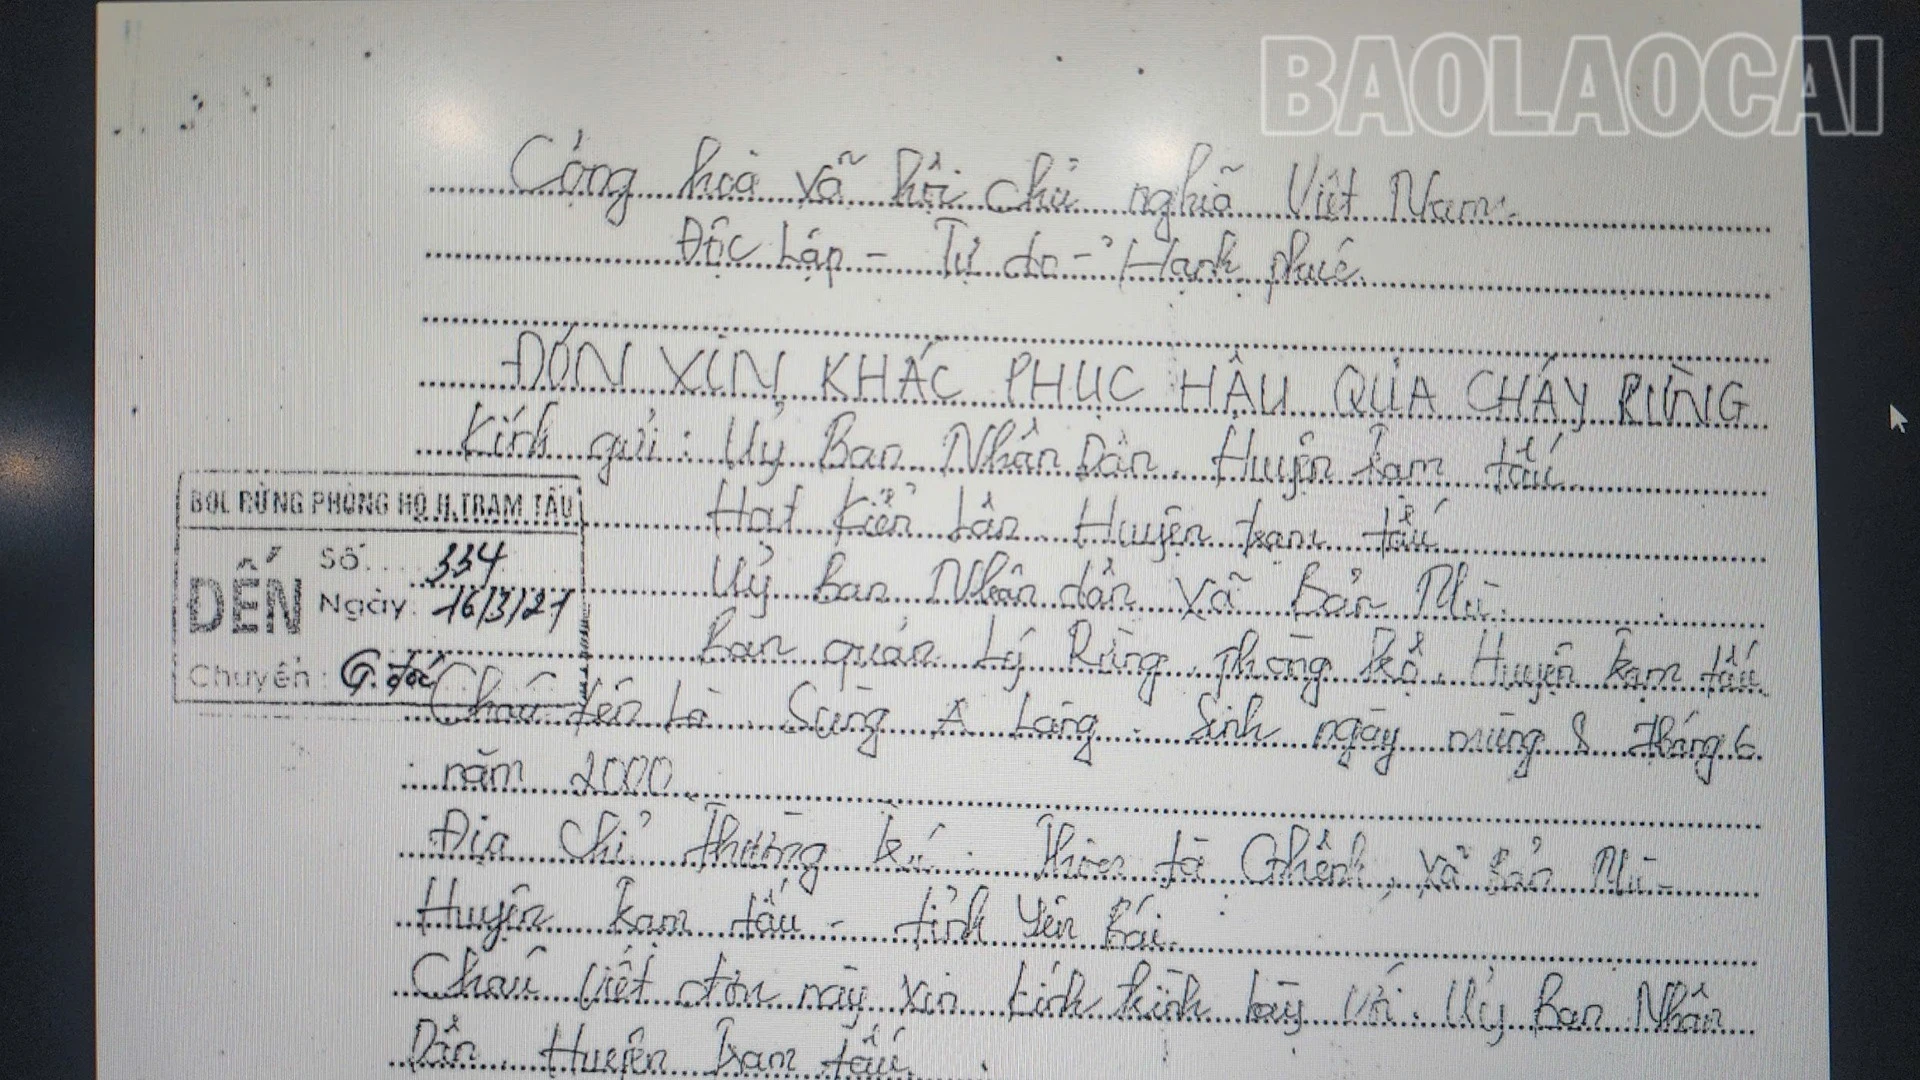 BAOLAOCAI
Cộng hoà xã hội chủ nghĩa Việt Nam.
Độc Lập - Tự do - Hạnh phúc.
ĐƠN XIN KHẮC PHỤC HẬU QỦA CHÁY RỪNG
Kính gửi: Uỷ Ban Nhân Dân. Huyện trạm tấu
Hạt Kiển Lân. Huyện trạm tấu
Uỷ Ban Nhân dân xã Bản Mù.
Ban quản Lý Rừng phòng hộ. Huyện trạm tấu
BQL RỪNG PHÒNG HỘ H.TRẠM TẤU
Số: 334
ĐẾN
Ngày: 16/3/21
Chuyển: G. đốc
Cháu tên Là Sùng A Làng. Sinh ngày mùng 8 tháng 6
năm 2000
Địa Chỉ Thường trú: Thôn tà Ghênh, xã Bản Mù -
Huyện trạm tấu - tỉnh Yên Bái.
Cháu viết đơn này xin kính trình bày với. Uỷ Ban Nhân
Dân. Huyện Trạm tấu.